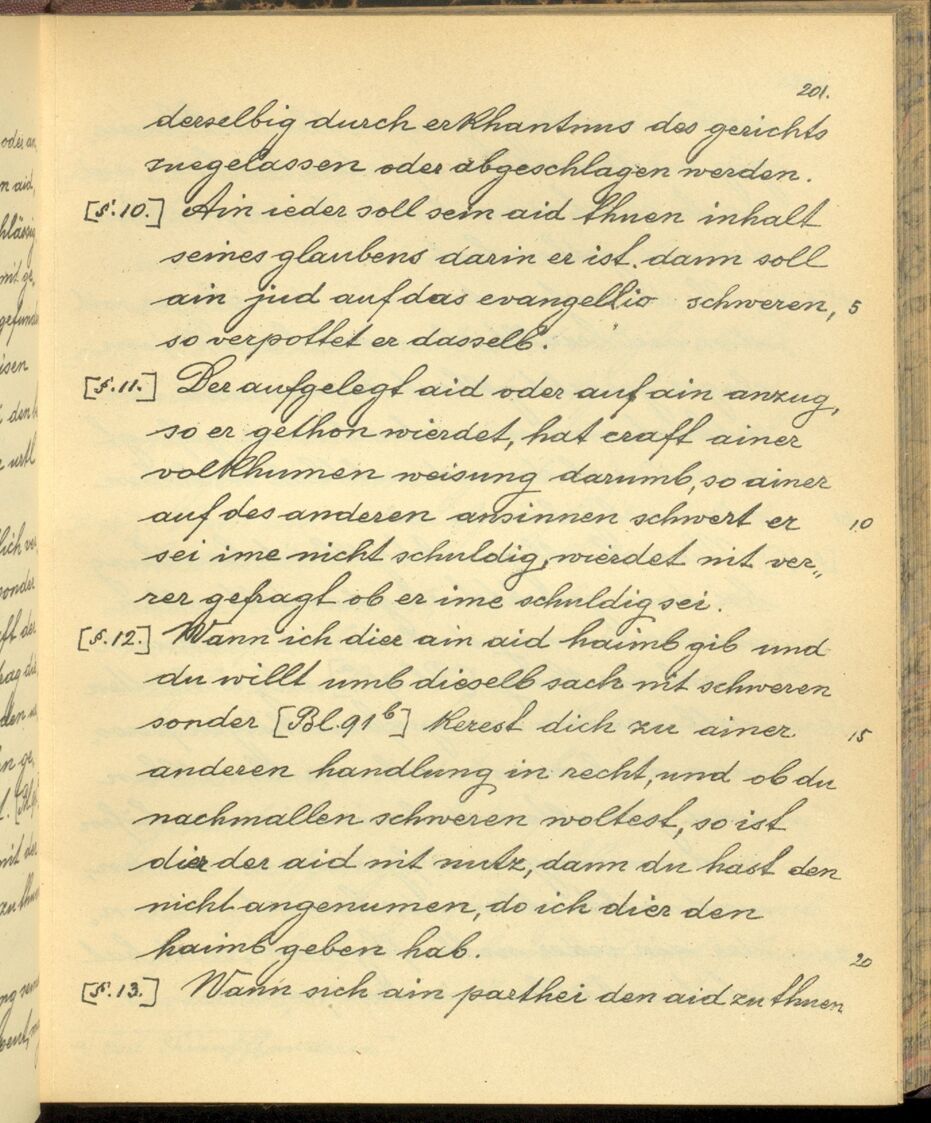 201.
derselbig durch erkhantnus des gerichts
zuegelassen oder abgeschlagen werden.
[§.10.] Ain ieder soll sein aid thuen inhalt
seines glaubens darin er ist. dann soll
ain jud auf das evangellio schweren, 5
so verpottet er dasselb.
[§.11.] Der aufgelegt aid oder auf ain anzug,
so er gethon wierdet, hat craft ainer
volkhumen weisung darumb, so ainer
auf des anderen ansinnen schwert er 10
sei ime nicht schuldig, wierdet nit ver„
rer gefragt ob er ime schuldig sei.
[§.12.] Wann ich dier ain aid haimb gib und
du willt umb dieselb sach nit schweren
sonder [Bl. 91b] kerest dich zu ainer 15
anderen handlung in recht, und ob du
nachmallen schweren woltest, so ist
dier der aid nit nutz, dann du hast den
nicht angenumen, do ich dier den
haimb geben hab. 20
[§.13.] Wann sich ain parthei den aid zu thuen